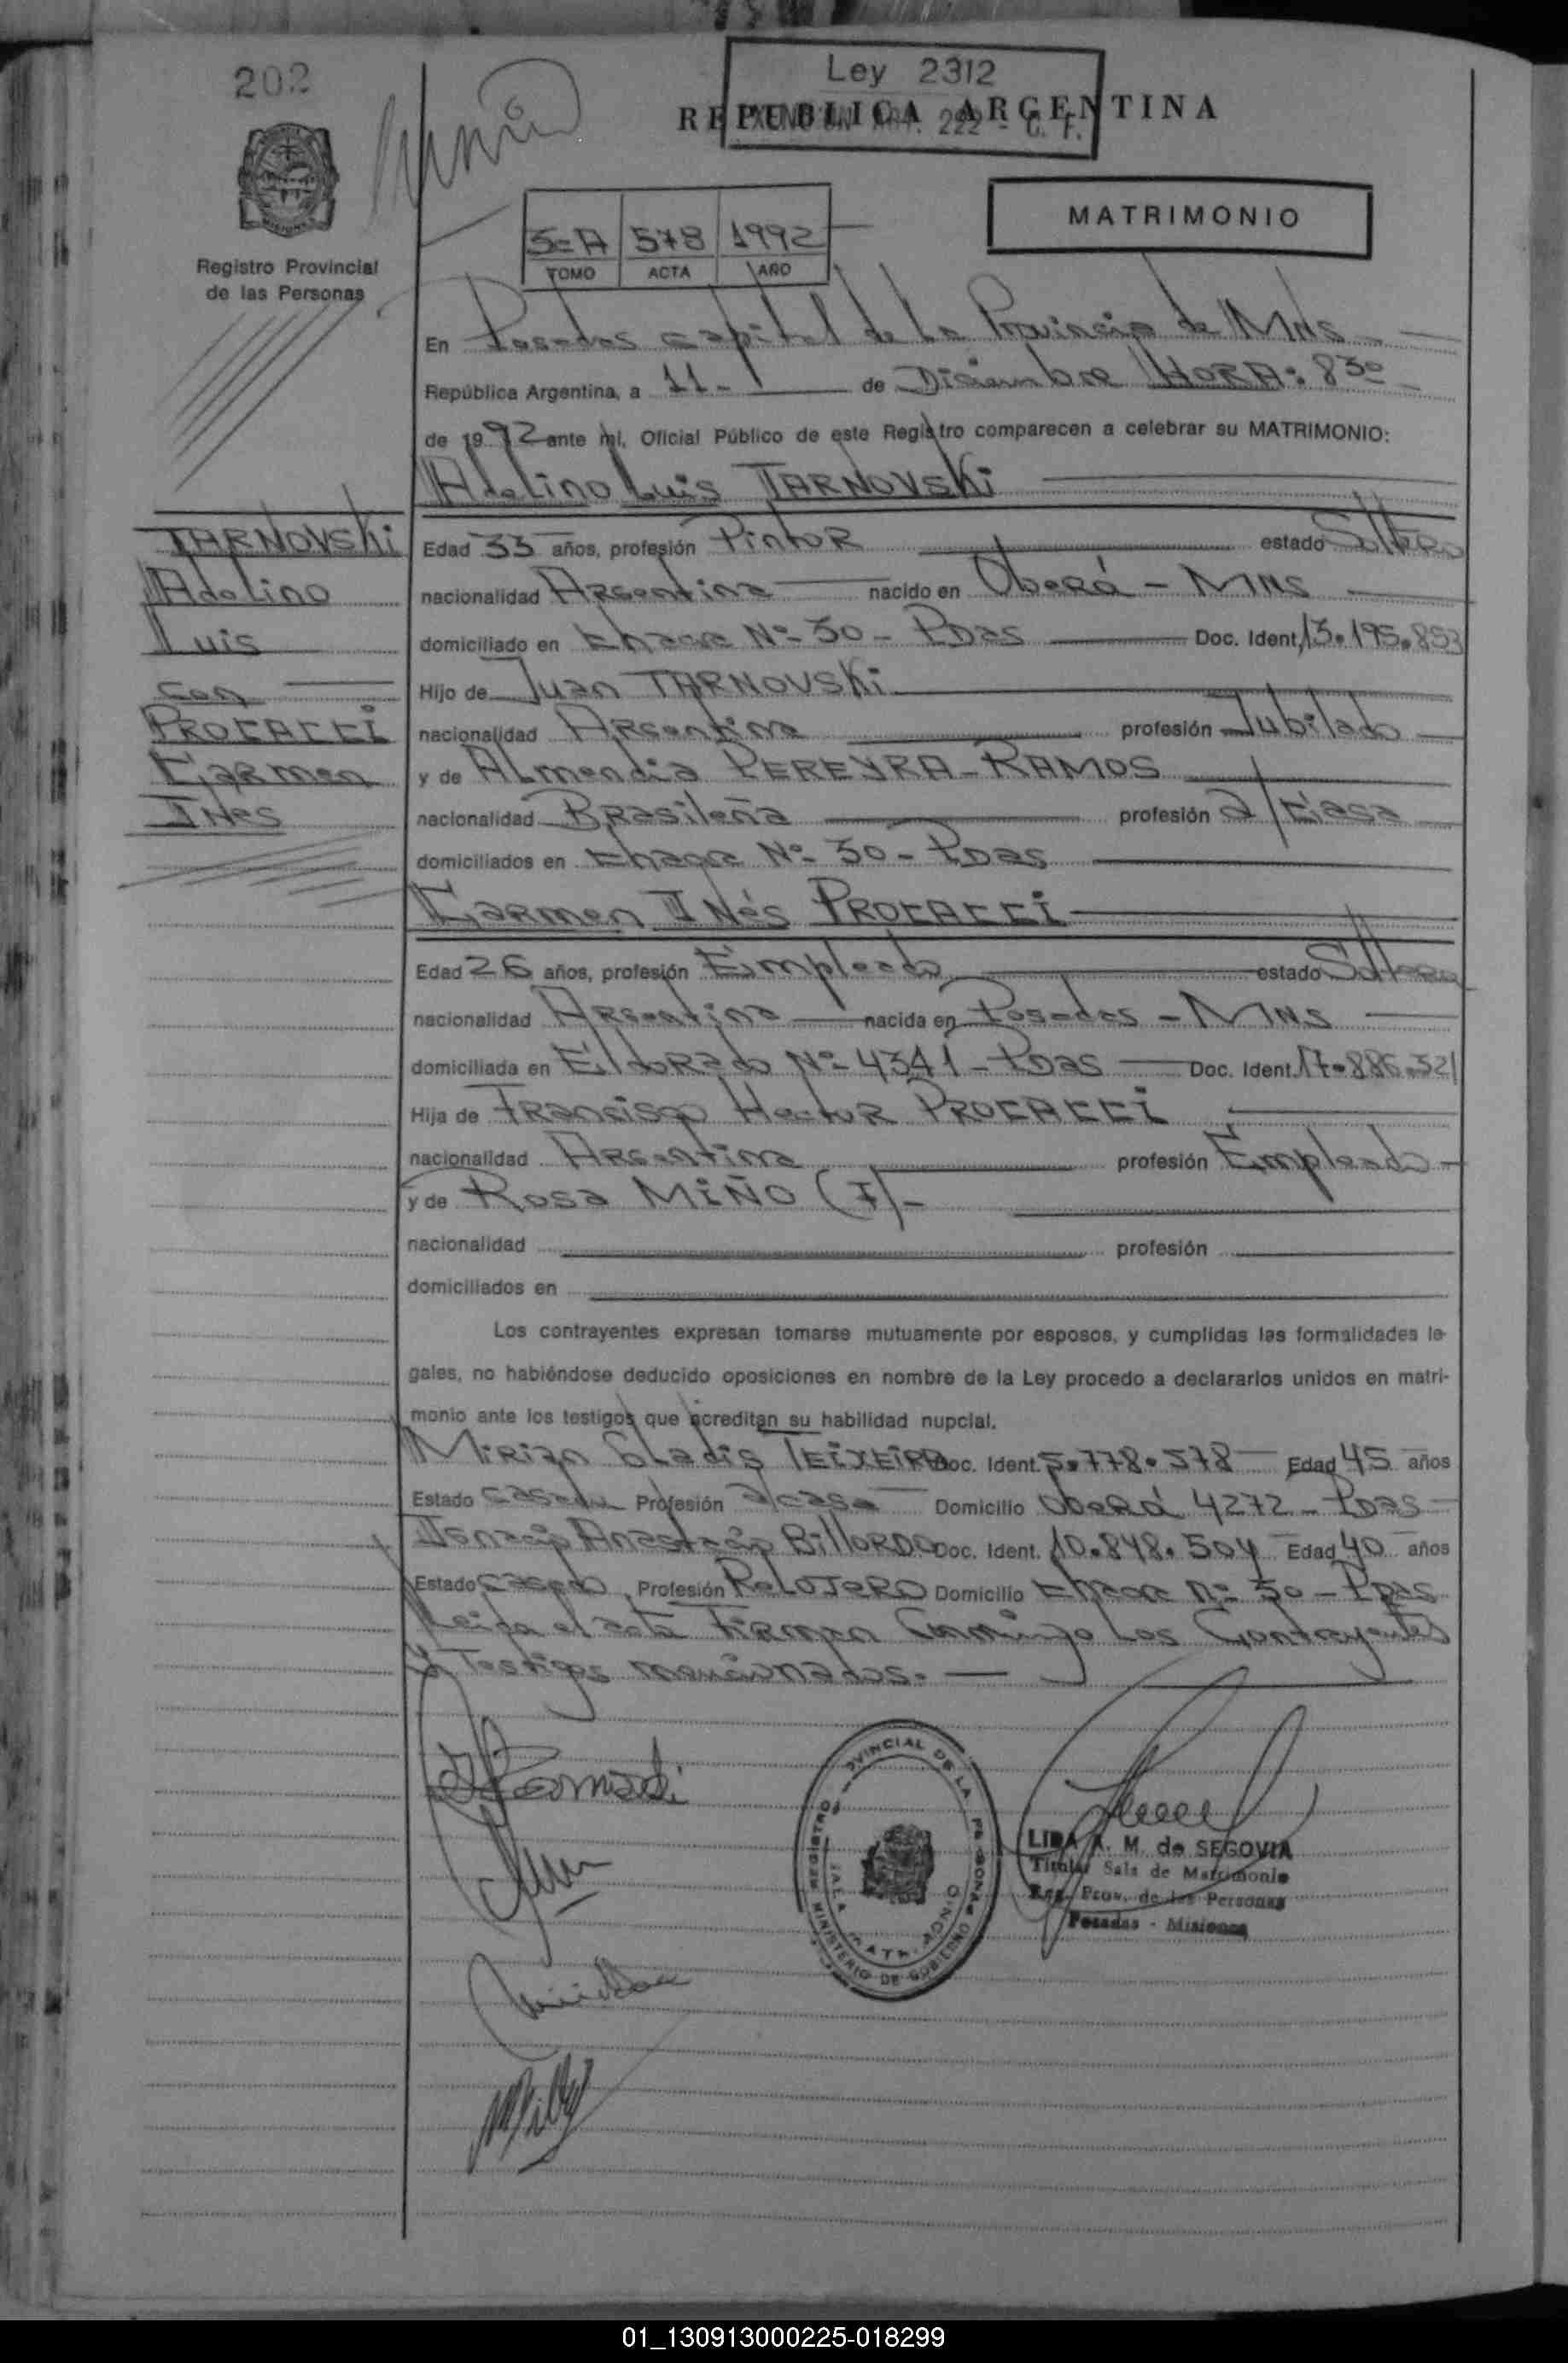 202
Ley 2312
REPUBLICA ARGENTINA
MATRIMONIO
3=A 578 1992
TOMO ACTA AÑO
Registro Provincial
de las Personas
En Posadas capital de la Provincia de MNS
República Argentina, a 11- de Diciembre HORA: 830
de 1992 ante mí, Oficial Público de este Registro comparecen a celebrar su MATRIMONIO:
Adelino Luis TARNOVSKi
TARNOVSKi
Adelino
Luis
con
PROCACCI
Carmen
INES
Edad 33 años, profesión Pintor estado Soltero
nacionalidad Argentina nacido en Oberá - MNS
domiciliado en Chaca Nº 30 - PDas Doc. Ident. 13.195.853
Hijo de Juan TARNOVSKi
nacionalidad Argentina profesión Jubilado
y de Almendia PEREYRA-RAMOS
nacionalidad Brasileña profesión a/Casa
domiciliados en Nº 30 - PDas
Carmen INés PROCACCI
Edad 26 años, profesión Empleada estado Soltera
nacionalidad Argentina nacida en Posadas - MNS
domiciliada en Eldorado Nº 4341 - PDas Doc. Ident. 17.886.321
Hija de Francisco Hector PROCACCI
nacionalidad Argentina profesión Empleado
y de Rosa MIÑO (F)-
nacionalidad profesión
domiciliados en
Los contrayentes expresan tomarse mutuamente por esposos, y cumplidas las formalidades le-
gales, no habiéndose deducido oposiciones en nombre de la Ley procedo a declararlos unidos en matri-
monio ante los testigos que acreditan su habilidad nupcial.
Mirian Gladis TEIXEIRA Doc. Ident. 5.778.578 Edad 45 años
Estado casada Profesión a/casa Domicilio Oberá 4272 - PDas
Anastacio BillORDO Doc. Ident. 10.848.504 Edad 40 años
Estado casado Profesión Relojero Domicilio Nº 30 - PDas
Leida el acta Firman Conmigo Los Contrayentes
y Testigos mencionados.
REGISTRO PROVINCIAL DE LAS PERSONAS
MINISTERIO DE GOBIERNO
LIDA A. M. de SEGOVIA
Titular Sala de Matrimonio
Reg. Prov. de las Personas
Posadas - Misiones
01_130913000225-018299